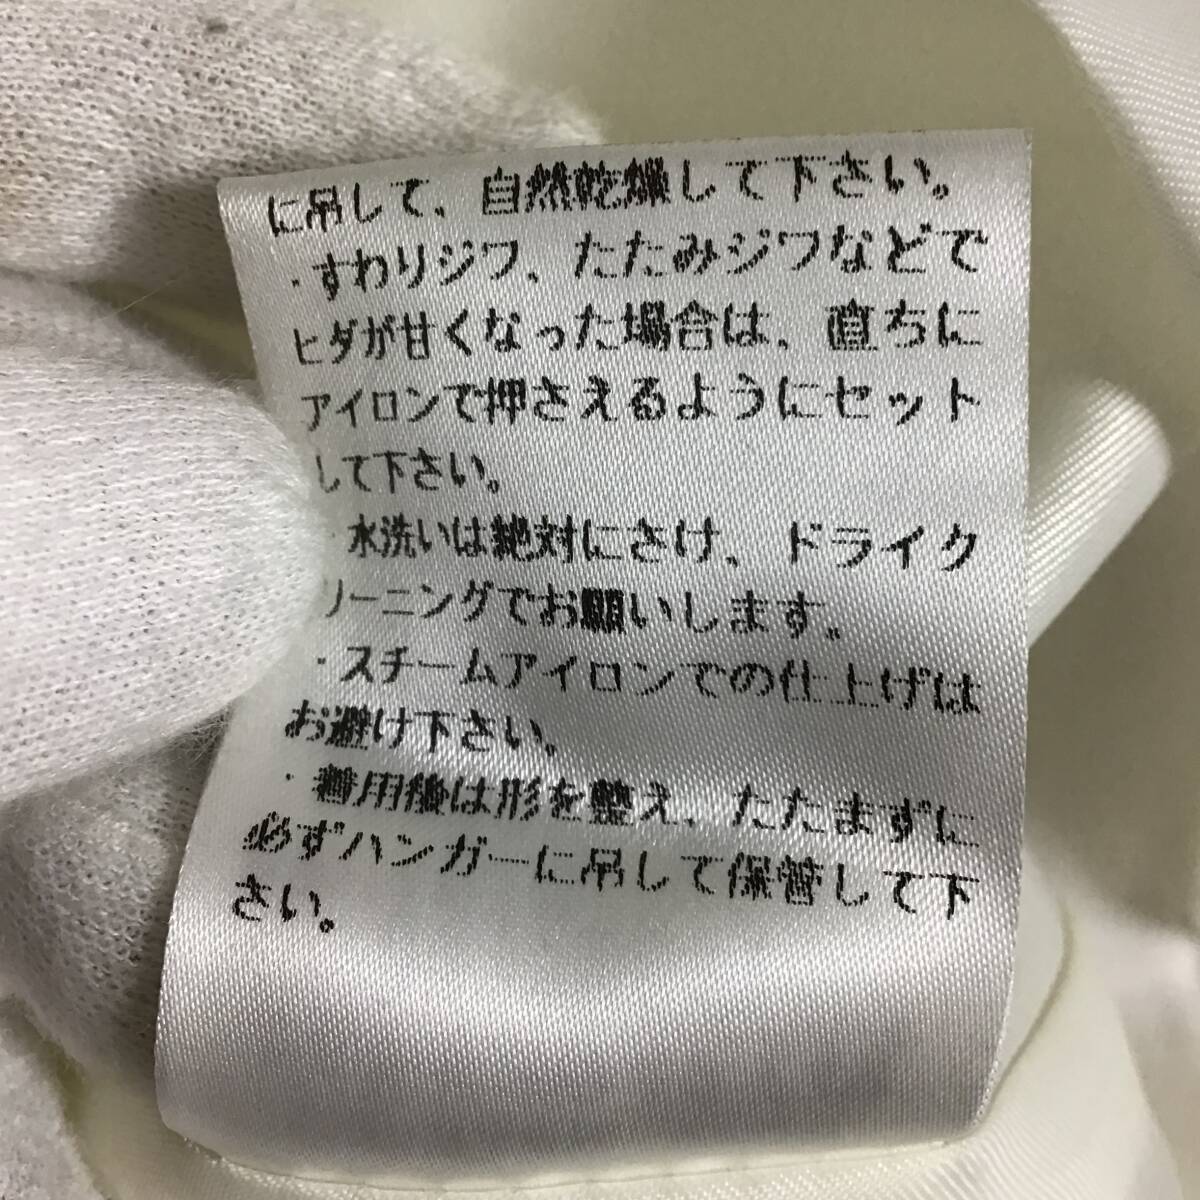 に吊して、自然乾燥して下さい。
・すわりジワ、たたみジワなどで
ヒダが甘くなった場合は、直ちに
アイロンで押さえるようにセット
して下さい。
・水洗いは絶対にさけ、ドライク
リーニングでお願いします。
・スチームアイロンでの仕上げは
お避け下さい。
・着用後は形を整え、たたまずに
必ずハンガーに吊して保管して下
さい。